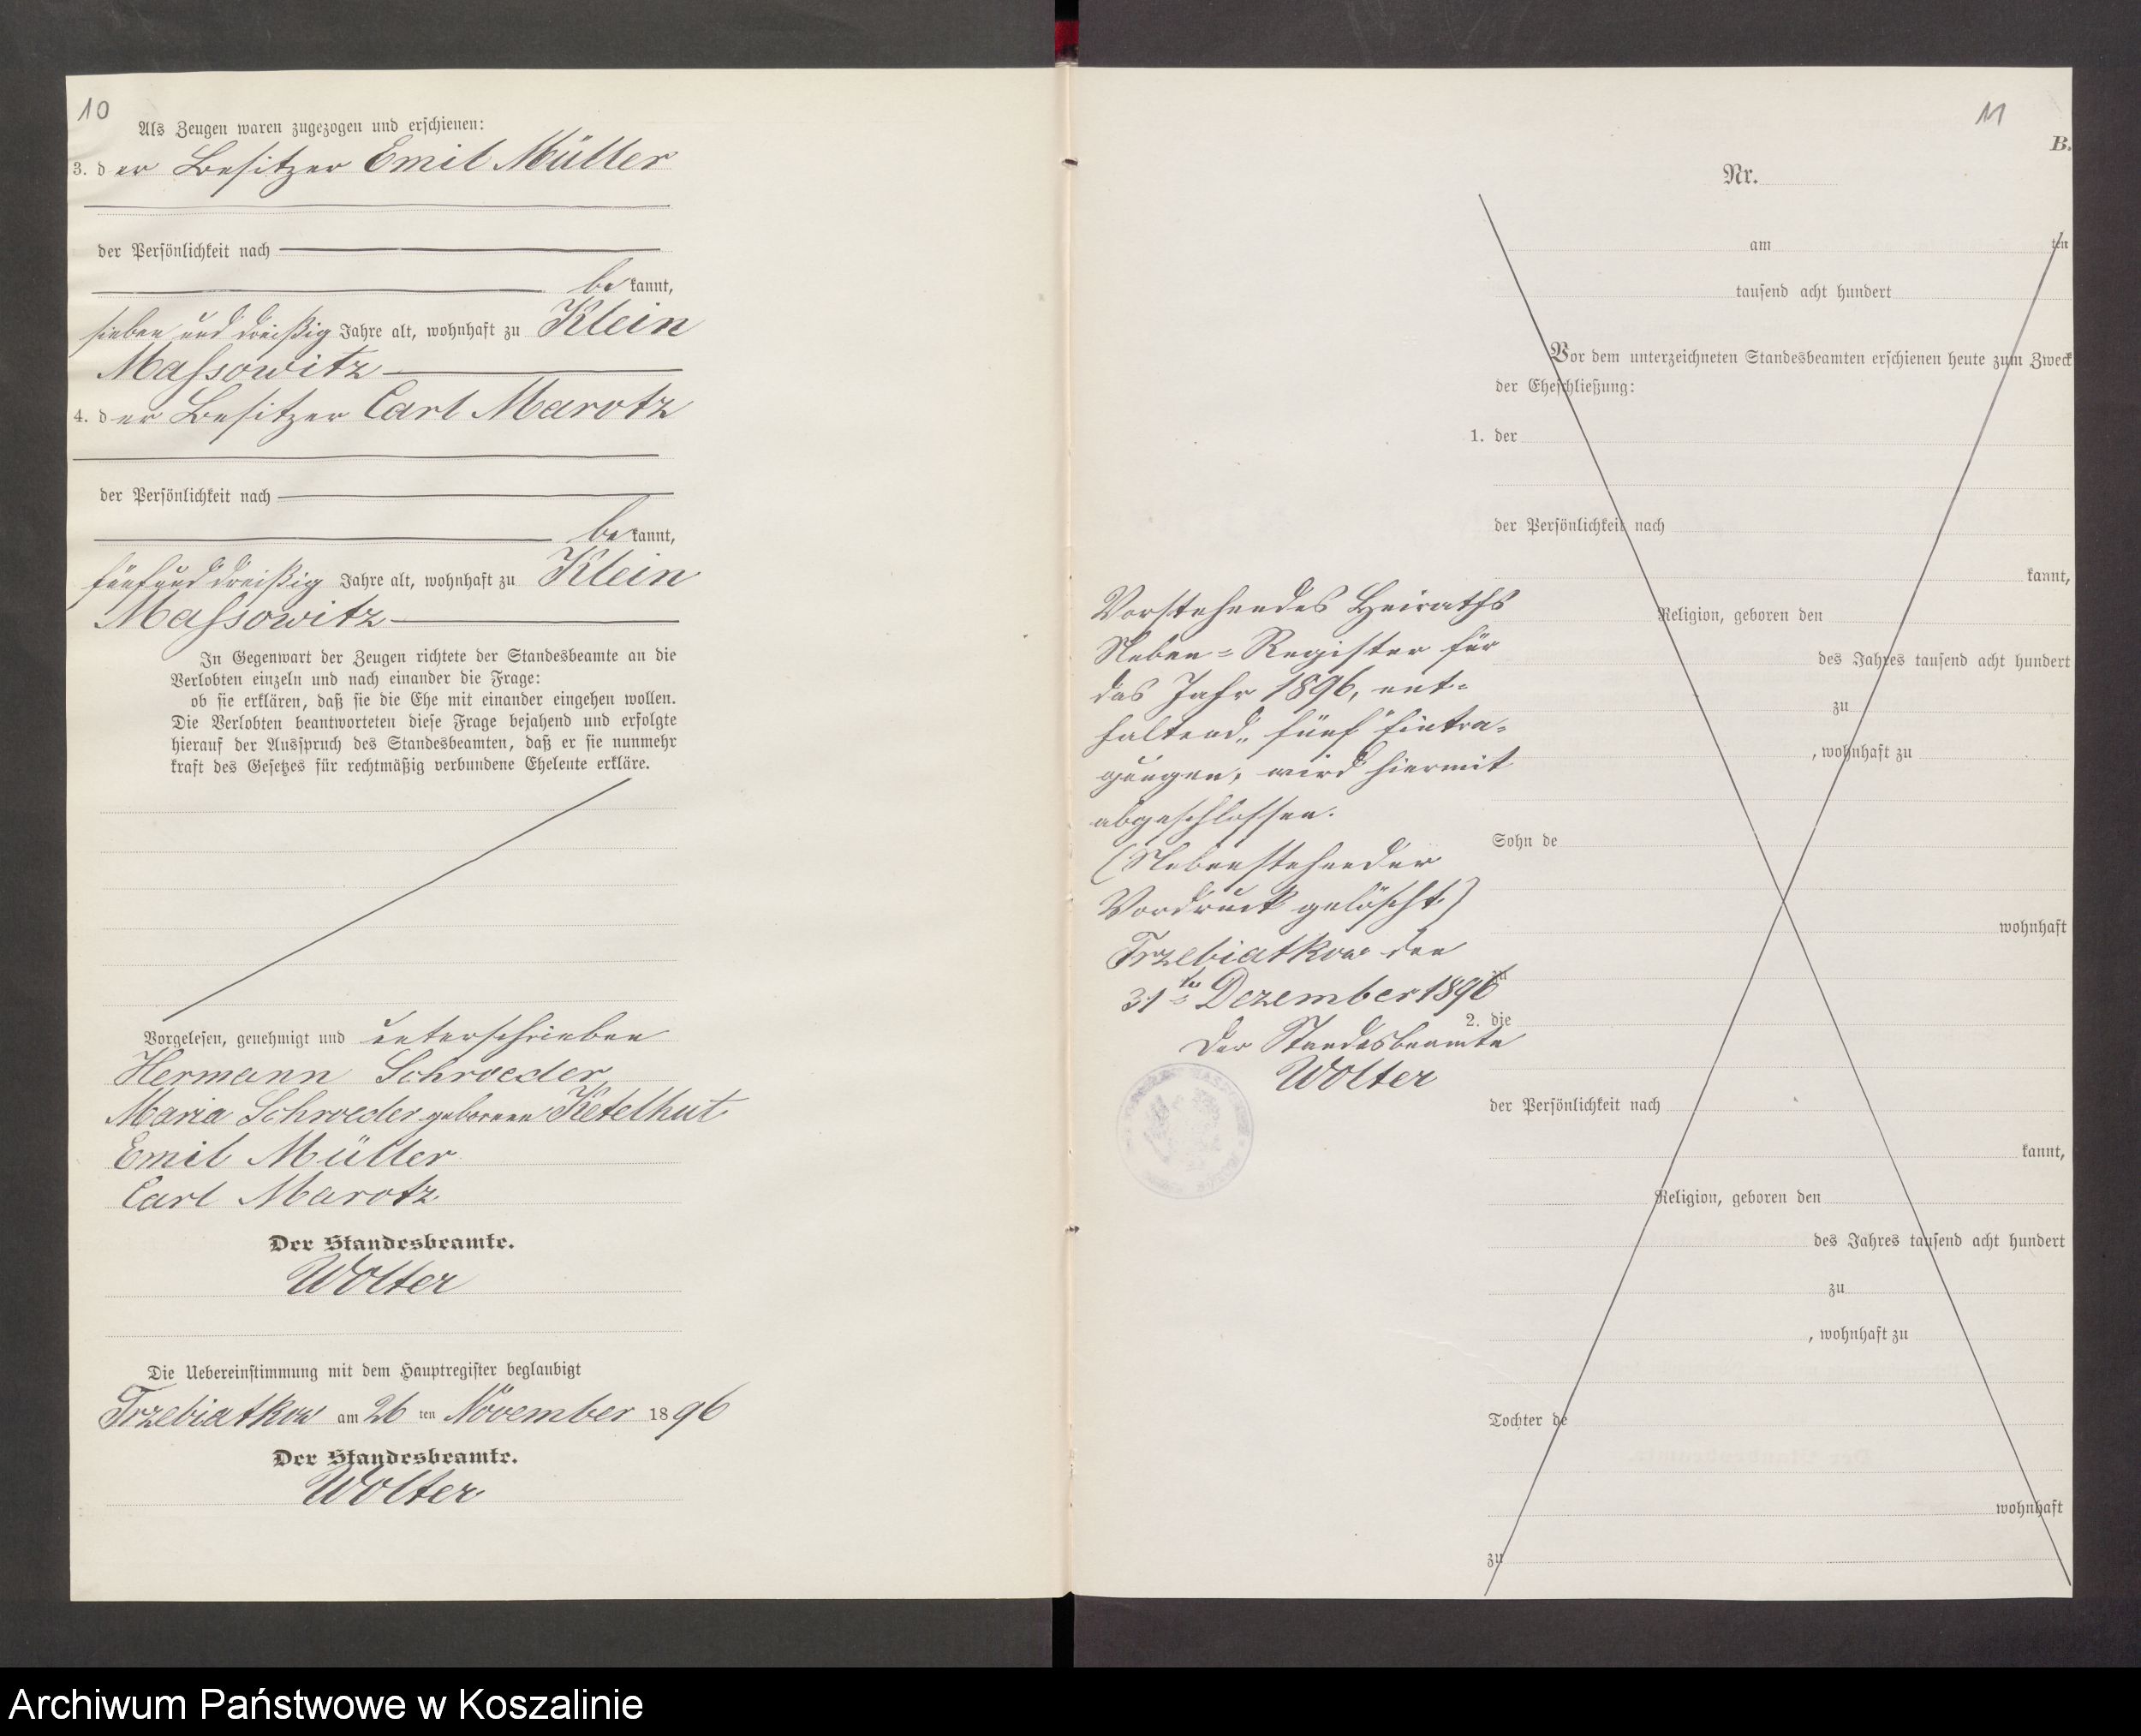 10
Als Zeugen waren zugezogen und erschienen:
3. der Besitzer Emil Müller
der Persönlichkeit nach
bekannt,
sieben und dreißig Jahre alt, wohnhaft zu Klein
Massowitz
4. der Besitzer Carl Marotz
der Persönlichkeit nach
bekannt,
fünf und dreißig Jahre alt, wohnhaft zu Klein
Massowitz
In Gegenwart der Zeugen richtete der Standesbeamte an die
Verlobten einzeln und nach einander die Frage:
ob sie erklären, daß sie die Ehe mit einander eingehen wollen.
Die Verlobten beantworteten diese Frage bejahend und erfolgte
hierauf der Ausspruch des Standesbeamten, daß er sie nunmehr
kraft des Gesetzes für rechtmäßig verbundene Eheleute erkläre.
Vorgelesen, genehmigt und unterschrieben
Hermann Schroeder
Maria Schroeder geborene Ketelhut
Emil Müller
Carl Marotz
Der Standesbeamte.
Wolter
Die Uebereinstimmung mit dem Hauptregister beglaubigt
Trzebiatkow am 26 ten November 1896
Der Standesbeamte.
Wolter
11
B.
Nr.
am ten
tausend acht hundert
Vor dem unterzeichneten Standesbeamten erschienen heute zum Zweck
der Eheschließung:
1. der
der Persönlichkeit nach
kannt,
Religion, geboren den
des Jahres tausend acht hundert
zu
, wohnhaft zu
Sohn de
wohnhaft
zu
2. die
der Persönlichkeit nach
kannt,
Religion, geboren den
des Jahres tausend acht hundert
zu
, wohnhaft zu
Tochter de
wohnhaft
zu
Vorstehendes Heiraths
Neben=Register für
das Jahr 1896, ent=
haltend „fünf“ Eintra=
gungen, wird hiermit
abgeschlossen.
(Nebenstehender
Vordruck gelöscht)
Trzebiatkow den
31ten Dezember 1896
Der Standesbeamte
Wolter
Archiwum Państwowe w Koszalinie